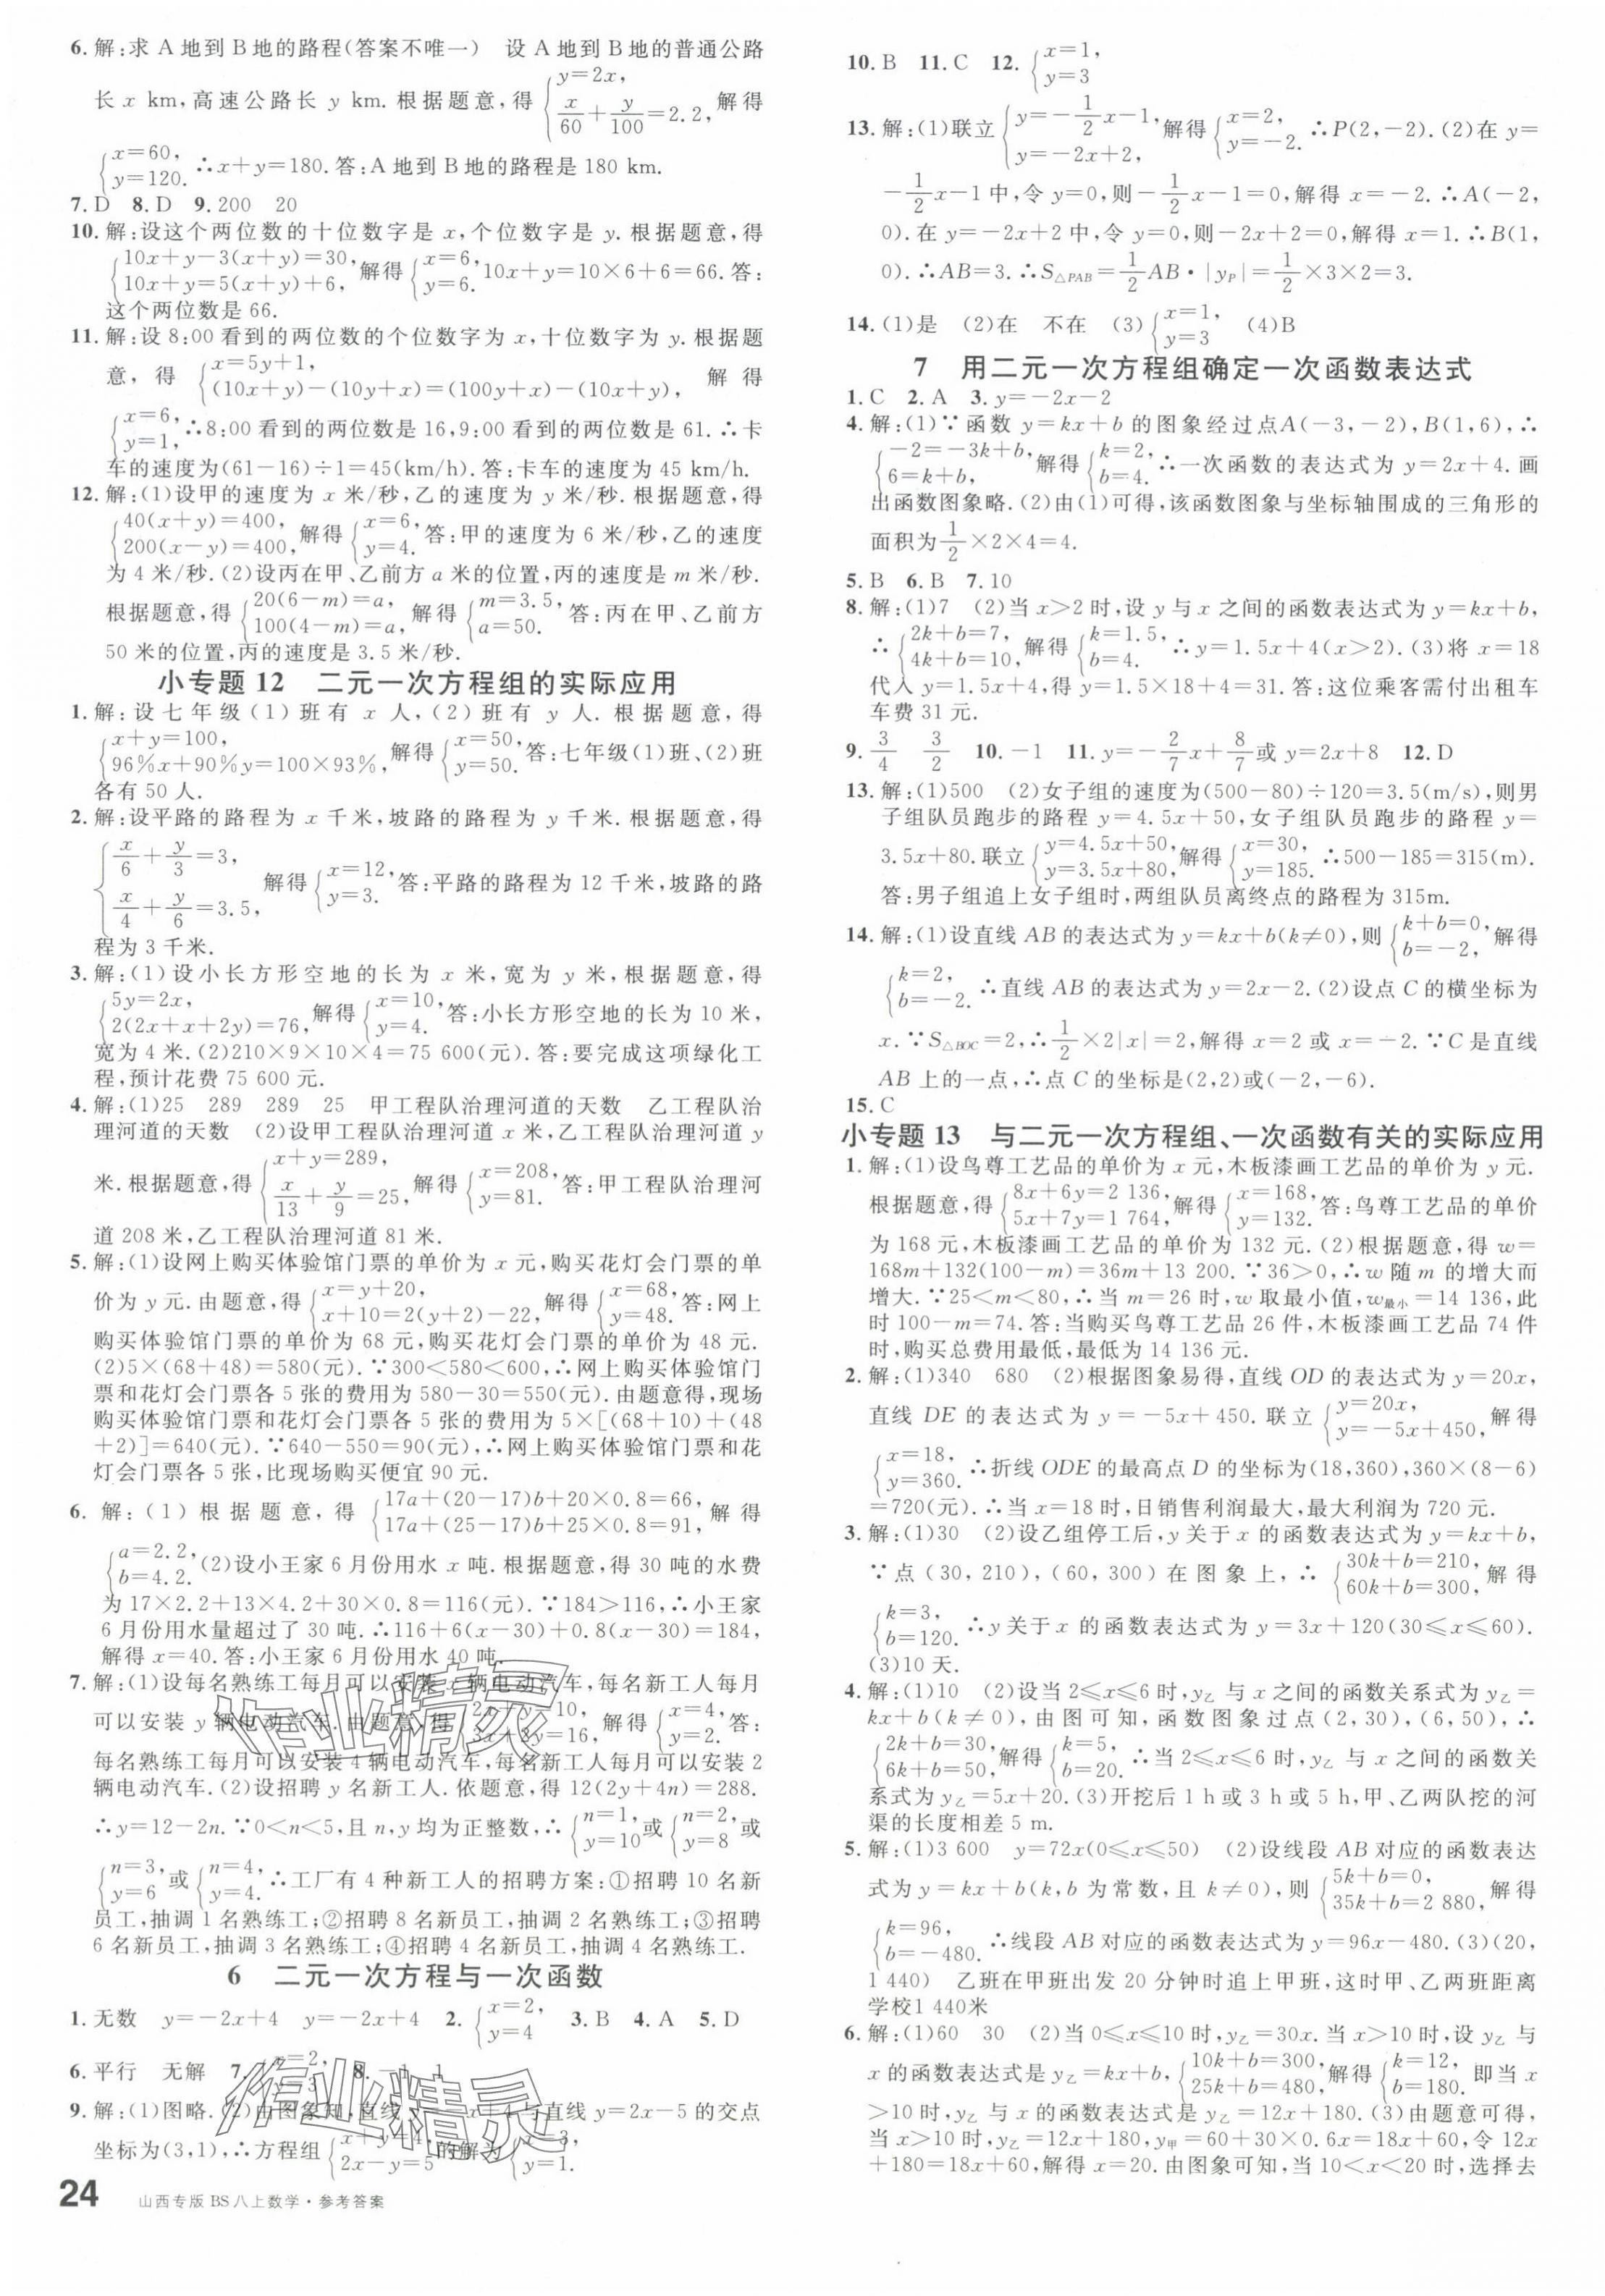 6. 解:求 A 地到 B 地的路程(答案不唯一) 设 A 地到 B 地的普通公路
长 x km,高速公路长 y km. 根据题意,得 {y=2x, x/60+y/100=2.2, 解得
{x=60, y=120. ∴x+y=180. 答:A 地到 B 地的路程是 180 km.
7. D 8. D 9. 200 20
10. 解:设这个两位数的十位数字是 x,个位数字是 y. 根据题意,得
{10x+y-3(x+y)=30, 10x+y=5(x+y)+6, 解得 {x=6, y=6. 10x+y=10×6+6=66. 答:
这个两位数是 66.
11. 解:设 8:00 看到的两位数的个位数字为 x,十位数字为 y. 根据题
意,得 {x=5y+1, (10x+y)-(10y+x)=(100y+x)-(10x+y), 解得
{x=6, y=1, ∴8:00 看到的两位数是 16,9:00 看到的两位数是 61. ∴卡
车的速度为(61-16)÷1=45(km/h). 答:卡车的速度为 45 km/h.
12. 解:(1)设甲的速度为 x 米/秒,乙的速度为 y 米/秒. 根据题意,得
{40(x+y)=400, 200(x-y)=400, 解得 {x=6, y=4. 答:甲的速度为 6 米/秒,乙的速度
为 4 米/秒. (2)设丙在甲、乙前方 a 米的位置,丙的速度是 m 米/秒.
根据题意,得 {20(6-m)=a, 100(4-m)=a, 解得 {m=3.5, a=50. 答:丙在甲、乙前方
50 米的位置,丙的速度是 3.5 米/秒.
小专题 12 二元一次方程组的实际应用
1. 解:设七年级(1)班有 x 人,(2)班有 y 人. 根据题意,得
{x+y=100, 96%x+90%y=100×93%, 解得 {x=50, y=50. 答:七年级(1)班、(2)班
各有 50 人.
2. 解:设平路的路程为 x 千米,坡路的路程为 y 千米. 根据题意,得
{x/6+y/3=3, x/4+y/6=3.5, 解得 {x=12, y=3. 答:平路的路程为 12 千米,坡路的路
程为 3 千米.
3. 解:(1)设小长方形空地的长为 x 米,宽为 y 米,根据题意,得
{5y=2x, 2(2x+x+2y)=76, 解得 {x=10, y=4. 答:小长方形空地的长为 10 米,
宽为 4 米. (2)210×9×10×4=75 600(元). 答:要完成这项绿化工
程,预计花费 75 600 元.
4. 解:(1)25 289 289 25 甲工程队治理河道的天数 乙工程队治
理河道的天数 (2)设甲工程队治理河道 x 米,乙工程队治理河道 y
米. 根据题意,得 {x+y=289, x/13+y/9=25, 解得 {x=208, y=81. 答:甲工程队治理河
道 208 米,乙工程队治理河道 81 米.
5. 解:(1)设网上购买体验馆门票的单价为 x 元,购买花灯会门票的单
价为 y 元. 由题意,得 {x=y+20, x+10=2(y+2)-22, 解得 {x=68, y=48. 答:网上
购买体验馆门票的单价为 68 元,购买花灯会门票的单价为 48 元.
(2)5×(68+48)=580(元). ∵300<580<600,∴网上购买体验馆门
票和花灯会门票各 5 张的费用为 580-30=550(元). 由题意得,现场
购买体验馆门票和花灯会门票各 5 张的费用为 5×[(68+10)+(48
+2)]=640(元). ∵640-550=90(元),∴网上购买体验馆门票和花
灯会门票各 5 张,比现场购买便宜 90 元.
6. 解:(1)根据题意,得 {17a+(20-17)b+20×0.8=66, 17a+(25-17)b+25×0.8=91, 解得
{a=2.2, b=4.2. (2)设小王家 6 月份用水 x 吨. 根据题意,得 30 吨的水费
为 17×2.2+13×4.2+30×0.8=116(元). ∵184>116,∴小王家
6 月份用水量超过了 30 吨. ∴116+6(x-30)+0.8(x-30)=184,
解得 x=40. 答:小王家 6 月份用水 40 吨.
7. 解:(1)设每名熟练工每月可以安装 x 辆电动汽车,每名新工人每月
可以安装 y 辆电动汽车. 由题意,得 10, =16, 解得 {x=4, y=2. 答:
每名熟练工每月可以安装 4 辆电动汽车,每名新工人每月可以安装 2
辆电动汽车. (2)设招聘 y 名新工人. 依题意,得 12(2y+4n)=288.
∴y=12-2n. ∵0<n<5,且 n,y 均为正整数,∴{n=1, y=10 或 {n=2, y=8 或
{n=3, y=6 或 {n=4, y=4. ∴工厂有 4 种新工人的招聘方案:①招聘 10 名新
员工,抽调 1 名熟练工;②招聘 8 名新员工,抽调 2 名熟练工;③招聘
6 名新员工,抽调 3 名熟练工;④招聘 4 名新员工,抽调 4 名熟练工.
6 二元一次方程与一次函数
1. 无数 y=-2x+4 y=-2x+4 2. {x=2, y=4 3. B 4. A 5. D
6. 平行 无解 7. {x=2, 8.
9. 解:(1)图略. (2)由图象知,直线 与直线 y=2x-5 的交点
坐标为(3,1),∴方程组 {x+y=4, 2x-y=5 的解为 {x=3, y=1.
24 山西专版 BS 八上数学·参考答案
10. B 11. C 12. {x=1, y=3
13. 解:(1)联立 {y=-1/2x-1, y=-2x+2, 解得 {x=2, y=-2. ∴P(2,-2). (2)在 y=
-1/2x-1 中,令 y=0,则-1/2x-1=0,解得 x=-2. ∴A(-2,
0). 在 y=-2x+2 中,令 y=0,则-2x+2=0,解得 x=1. ∴B(1,
0). ∴AB=3. ∴S△PAB=1/2AB·|yP|=1/2×3×2=3.
14. (1)是 (2)在 不在 (3){x=1, y=3 (4)B
7 用二元一次方程组确定一次函数表达式
1. C 2. A 3. y=-2x-2
4. 解:(1)∵函数 y=kx+b 的图象经过点A(-3,-2),B(1,6),∴
{-2=-3k+b, 6=k+b, 解得 {k=2, b=4. ∴一次函数的表达式为 y=2x+4. 画
出函数图象略. (2)由(1)可得,该函数图象与坐标轴围成的三角形的
面积为1/2×2×4=4.
5. B 6. B 7. 10
8. 解:(1)7 (2)当 x>2 时,设 y 与 x 之间的函数表达式为 y=kx+b,
∴{2k+b=7, 4k+b=10, 解得 {k=1.5, b=4. ∴y=1.5x+4(x>2). (3)将 x=18
代入 y=1.5x+4,得 y=1.5×18+4=31. 答:这位乘客需付出租车
车费 31 元.
9. 3/4 3/2 10. -1 11. y=-2/7x+8/7或 y=2x+8 12. D
13. 解:(1)500 (2)女子组的速度为(500-80)÷120=3.5(m/s),则男
子组队员跑步的路程 y=4.5x+50,女子组队员跑步的路程 y=
3.5x+80. 联立 {y=4.5x+50, y=3.5x+80, 解得 {x=30, y=185. ∴500-185=315(m).
答:男子组追上女子组时,两组队员离终点的路程为 315m.
14. 解:(1)设直线 AB 的表达式为 y=kx+b(k≠0),则 {k+b=0, b=-2, 解得
{k=2, b=-2. ∴直线 AB 的表达式为 y=2x-2. (2)设点 C 的横坐标为
x. ∵S△BOC=2,∴1/2×2|x|=2,解得 x=2 或 x=-2. ∵C 是直线
AB 上的一点,∴点 C 的坐标是(2,2)或(-2,-6).
15. C
小专题 13 与二元一次方程组、一次函数有关的实际应用
1. 解:(1)设鸟尊工艺品的单价为 x 元,木板漆画工艺品的单价为 y 元.
根据题意,得 {8x+6y=2 136, 5x+7y=1 764, 解得 {x=168, y=132. 答:鸟尊工艺品的单价
为 168 元,木板漆画工艺品的单价为 132 元. (2)根据题意,得 w=
168m+132(100-m)=36m+13 200. ∵36>0,∴w 随 m 的增大而
增大. ∵25<m<80,∴当 m=26 时,w 取最小值,w最小=14 136,此
时 100-m=74. 答:当购买鸟尊工艺品 26 件,木板漆画工艺品 74 件
时,购买总费用最低,最低为 14 136 元.
2. 解:(1)340 680 (2)根据图象易得,直线 OD 的表达式为 y=20x,
直线 DE 的表达式为 y=-5x+450. 联立 {y=20x, y=-5x+450, 解得
{x=18, y=360. ∴折线 ODE 的最高点 D 的坐标为(18,360),360×(8-6)
=720(元). ∴当 x=18 时,日销售利润最大,最大利润为 720 元.
3. 解:(1)30 (2)设乙组停工后,y 关于 x 的函数表达式为 y=kx+b,
∵点(30,210),(60,300)在图象上,∴{30k+b=210, 60k+b=300, 解得
{k=3, b=120. ∴y 关于 x 的函数表达式为 y=3x+120(30≤x≤60).
(3)10 天.
4. 解:(1)10 (2)设当 2≤x≤6 时,y乙 与 x 之间的函数关系式为 y乙=
kx+b(k≠0),由图可知,函数图象过点(2,30),(6,50),∴
{2k+b=30, 6k+b=50, 解得 {k=5, b=20. ∴当 2≤x≤6 时,y乙 与 x 之间的函数关
系式为 y乙=5x+20. (3)开挖后 1 h 或 3 h 或 5 h,甲、乙两队挖的河
渠的长度相差 5 m.
5. 解:(1)3 600 y=72x(0≤x≤50) (2)设线段 AB 对应的函数表达
式为 y=kx+b(k,b 为常数,且 k≠0),则 {5k+b=0, 35k+b=2 880, 解得
{k=96, b=-480. ∴线段 AB 对应的函数表达式为 y=96x-480. (3)(20,
1 440) 乙班在甲班出发 20 分钟时追上甲班,这时甲、乙两班距离
学校1 440米
6. 解:(1)60 30 (2)当 0≤x≤10 时,y乙=30x. 当 x>10 时,设 y乙 与
x 的函数表达式是 y乙=kx+b, {10k+b=300, 25k+b=480, 解得 {k=12, b=180. 即当 x
>10 时,y乙 与 x 的函数表达式是 y乙=12x+180. (3)由题意可得,
当 x>10 时,y乙=12x+180,y甲=60+30×0.6x=18x+60,令 12x
+180=18x+60,解得 x=20. 由图象可知,当 10<x<20 时,选择去
作业精灵
作业精灵